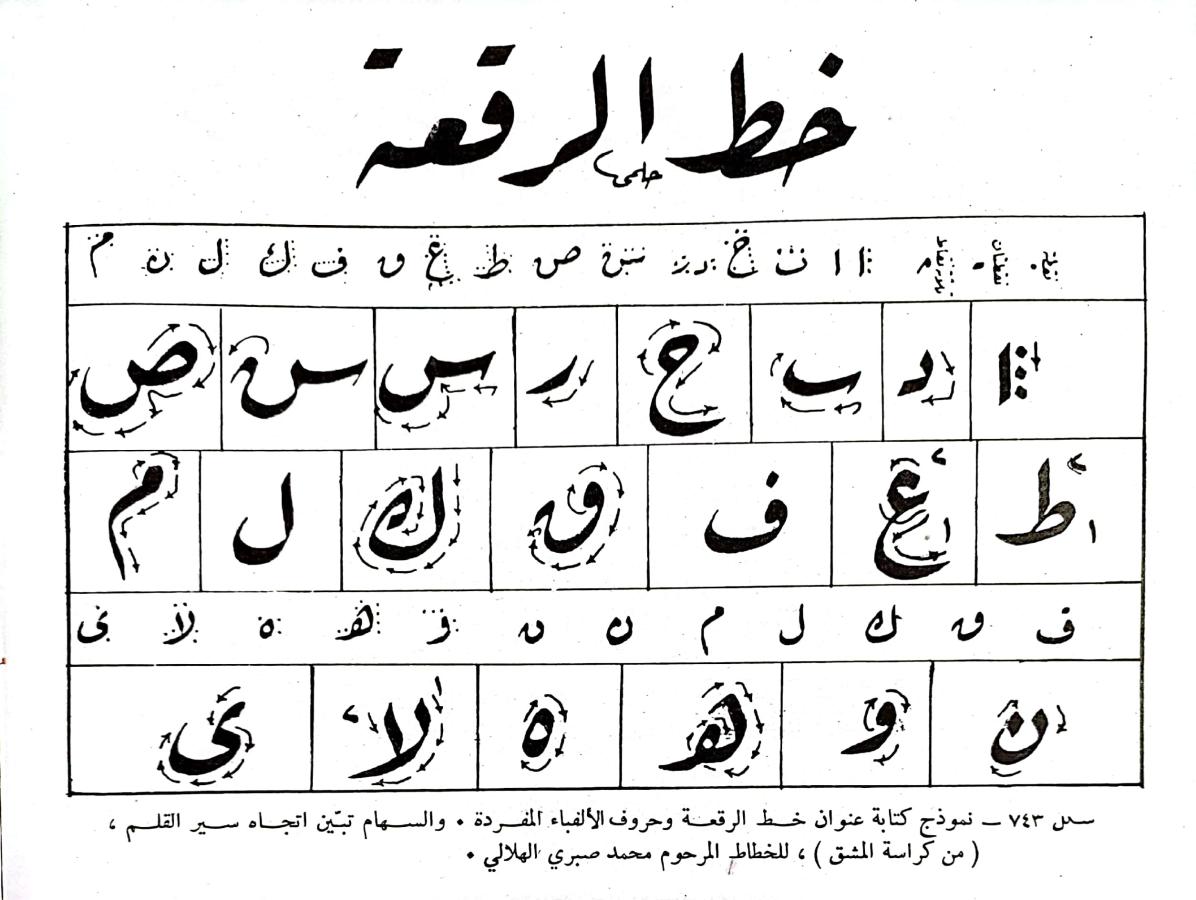 خط الرقعة
حلمى
نقطة نقطتان ثلاث نقاط ا ا ت خ در س ص ط ع و ف ك ل ن م
ا د ب ح ر س س ص
ط ع ف ق ك ل م
ف ق ك ل م ن ن و ه ه لا ى
ن و ه ه لا ى
شكل ٧٤٣ ـ نموذج كتابة عنوان خط الرقعة وحروف الألفباء المفردة ٠ والسهام تبّين اتجاه سير القلم ،
( من كراسة المشق ) ، للخطاط المرحوم محمد صبري الهلالي ٠